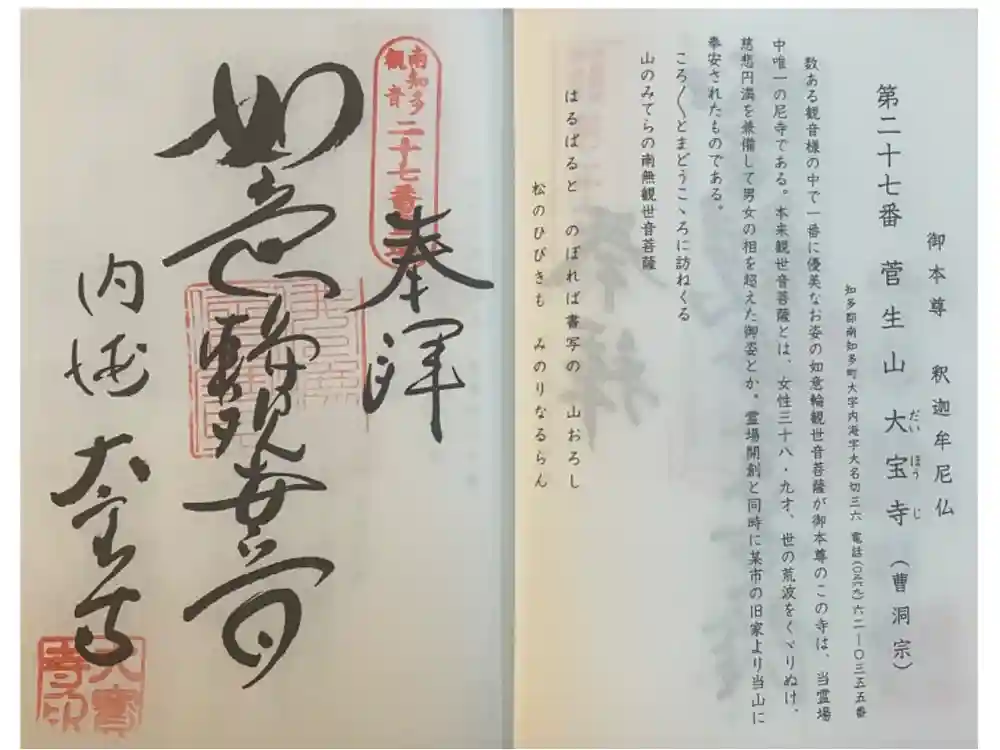 御本尊 釈迦牟尼仏
第二十七番 菅生山 大宝寺 (曹洞宗)
だい ほう じ
知多郡南知多町大字内海字大名切三六 電話(〇五六九)六二ー〇三五五番
数ある観音様の中で一番に優美なお姿の如意輪観世音菩薩が御本尊のこの寺は、当霊場
中唯一の尼寺である。本来観世音菩薩とは、女性三十八・九才、世の荒波をくゞりぬけ、
慈悲円満を兼備して男女の相を超えた御姿とか。霊場開創と同時に某市の旧家より当山に
奉安されたものである。
ころ〳〵とまどうこゝろに訪ねくる
山のみてらの南無観世音菩薩
はるばると のぼれば書写の 山おろし
松のひびきも みのりなるらん
南知多
観音
二十七番
奉拝
如意輪観世音
内海 大宝寺